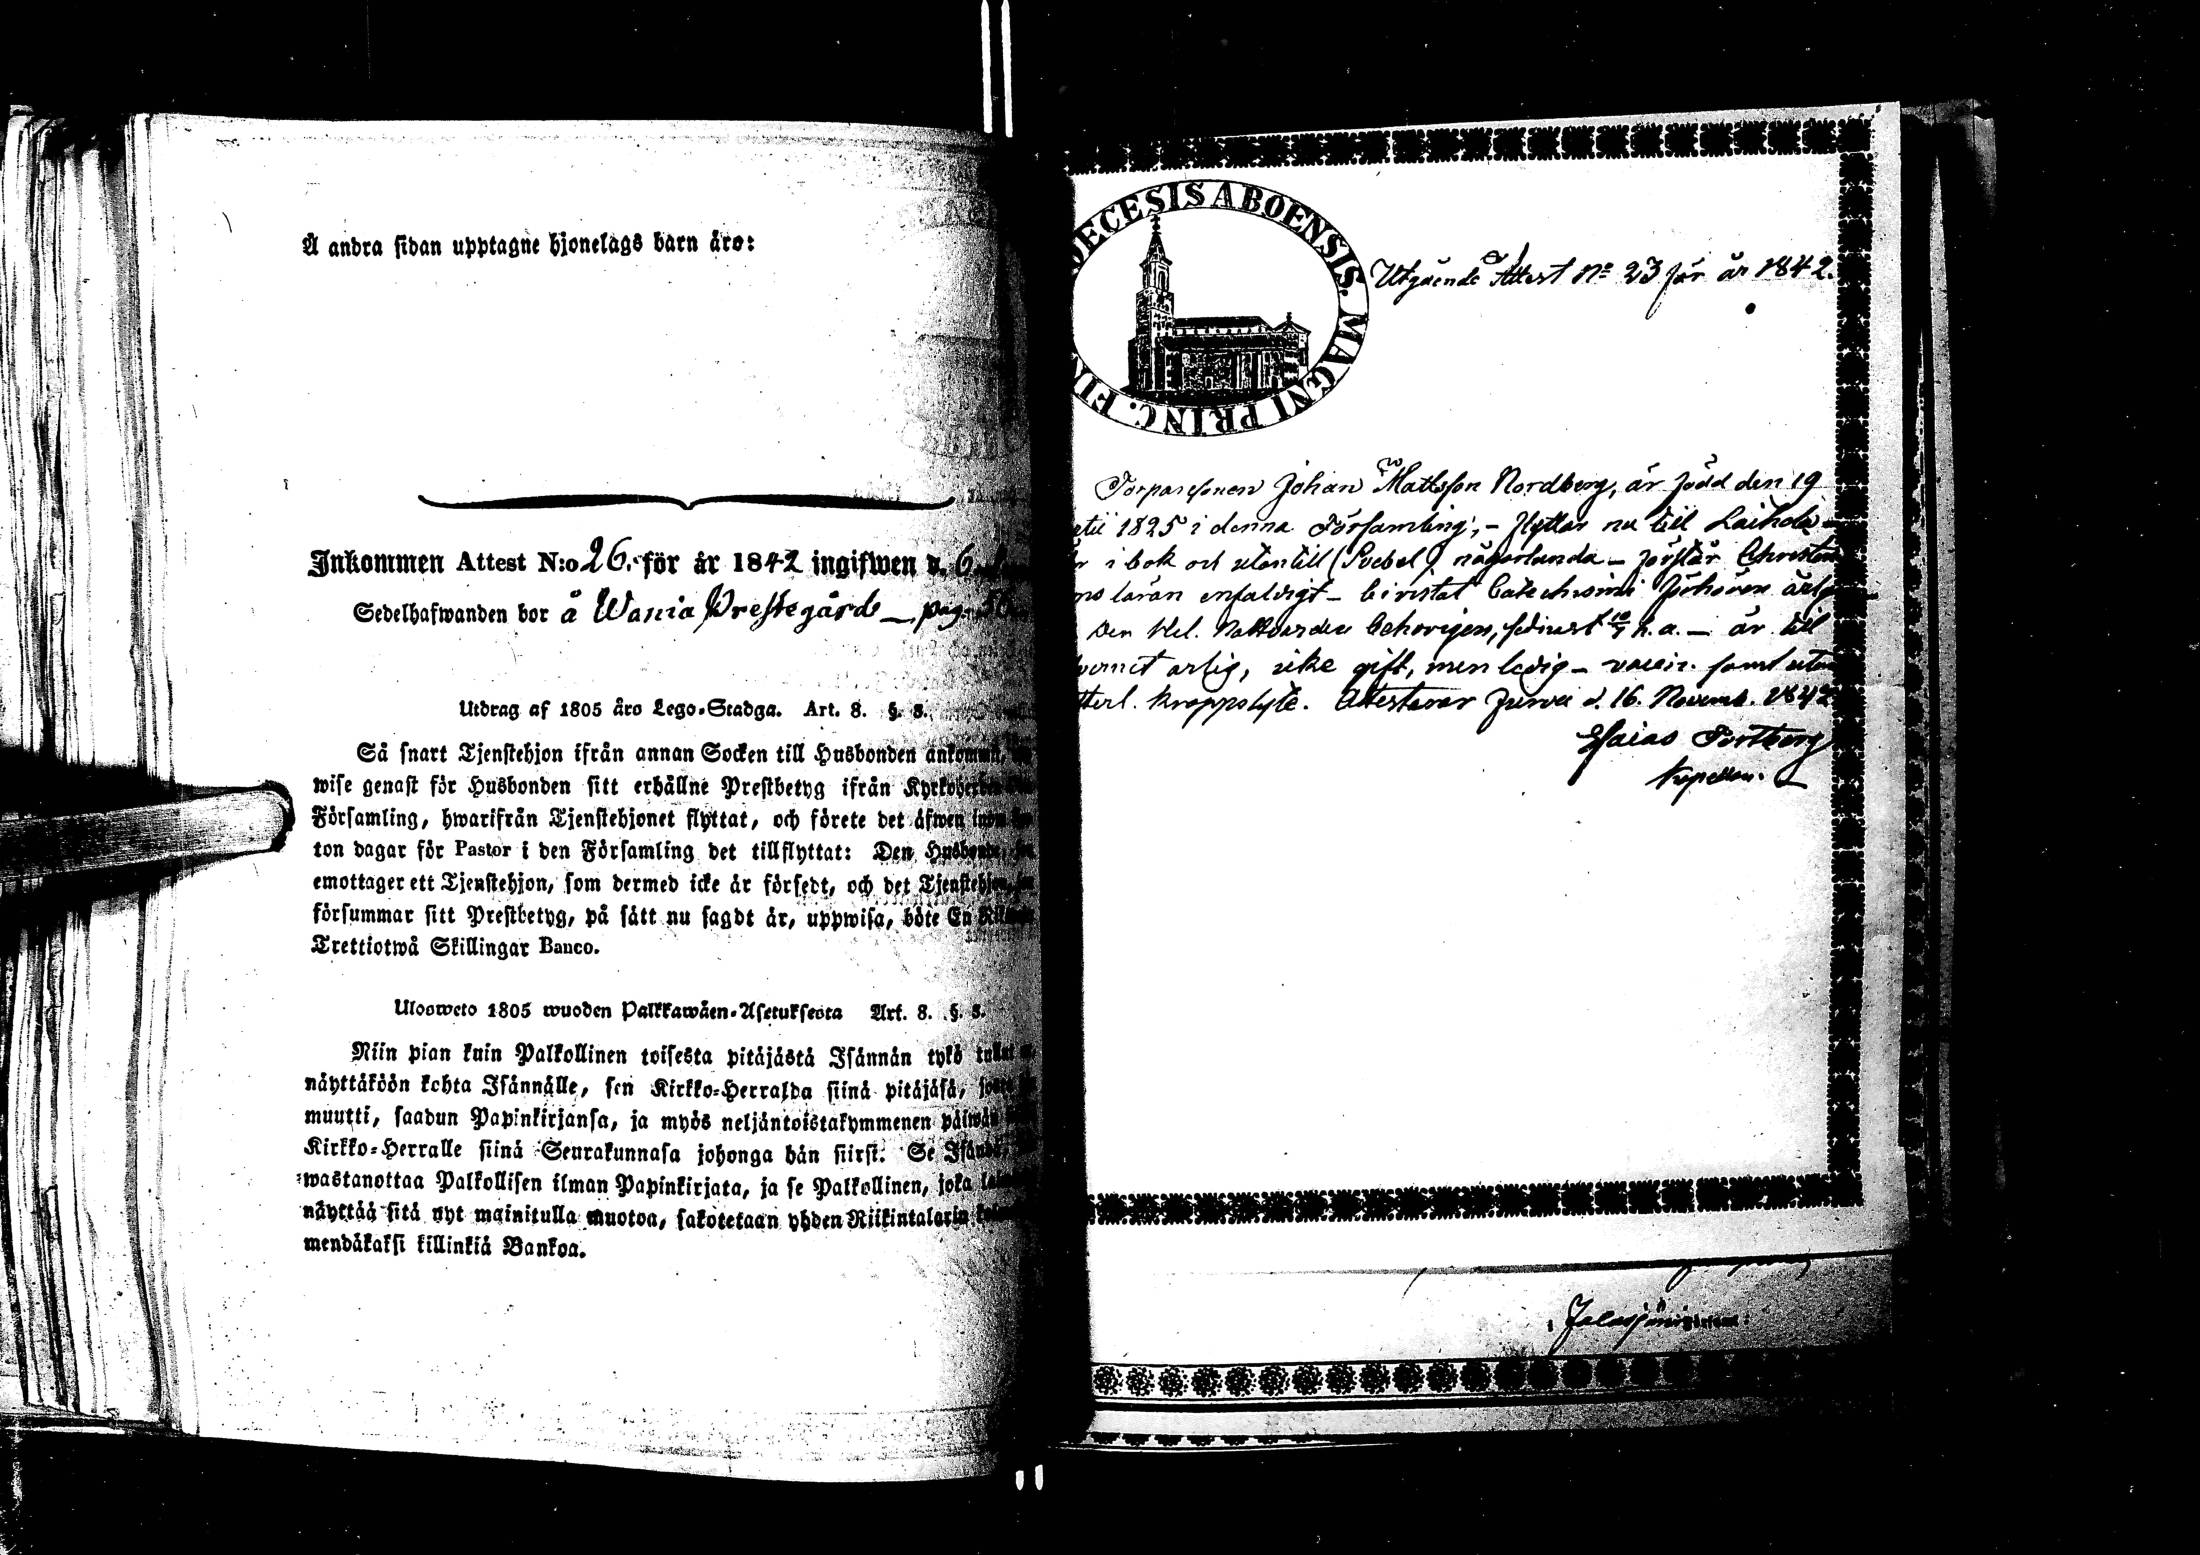 Å andra sidan upptagne hjonelags barn äro:
Inkommen Attest N:o 26. för år 1842 ingifwen d. 6.
Sedelhafwanden bor å Wania Prestegård — pag.
Utdrag af 1805 års Lego-Stadga. Art. 8. §. 8.
Så snart Tjenstehjon ifrån annan Socken till Husbonden ankommit,
wise genast för Husbonden sitt erhållne Prestbetyg ifrån
Församling, hwarifrån Tjenstehjonet flyttat, och förete det äfwen inom
ton dagar för Pastor i den Församling det tillflyttat: Den Husbonde,
emottager ett Tjenstehjon, som dermed icke är försedt, och det Tjenstehjon,
försummar sitt Prestbetyg, på sätt nu sagdt är, uppwisa, böte En
Trettiotwå Skillingar Banco.
Ulosweto 1805 wuoden Palkkawäen-Asetuksesta Art. 8. §. 8.
Niin pian kuin Palkollinen toisesta pitäjästä Isännän tykö tullut
näyttäköön kohta Isännälle, sen Kirkko-Herralda siinä pitäjäsä,
muutti, saadun Papinkirjansa, ja myös neljäntoistakymmenen päiwän
Kirkko-Herralle siinä Seurakunnasa johonga hän siirsi. Se Isändä,
wastanottaa Palkollisen ilman Papinkirjata, ja se Palkollinen, joka
näyttää sitä nyt mainitulla muotoa, sakotetaan yhden Riikintalarin
mendäkaksi killinkiä Bankoa.
DIOECESIS ABOENSIS. MAGNI PRINC. FIN
Utgående Attest No 23 för år 1842.
Torparesonen Johan Mattsson Nordberg, är född den 19
1825 i denna Församling, – flyttar nu till Laihela –
i bok och utantill (Svebel.) någorlunda – förstår Christen
läran enfaldigt – bivistat Catechismi förhören
Den Hel. Nattvarden behörigen, sednast h. a. – är till
vernet ärlig, icke gift, men ledig – vaccin. samt utan
kroppslyte. Attesterar Jurva d. 16. Novemb. 1842
Esaias Fortberg
Kapellan.
Jalasjärvi